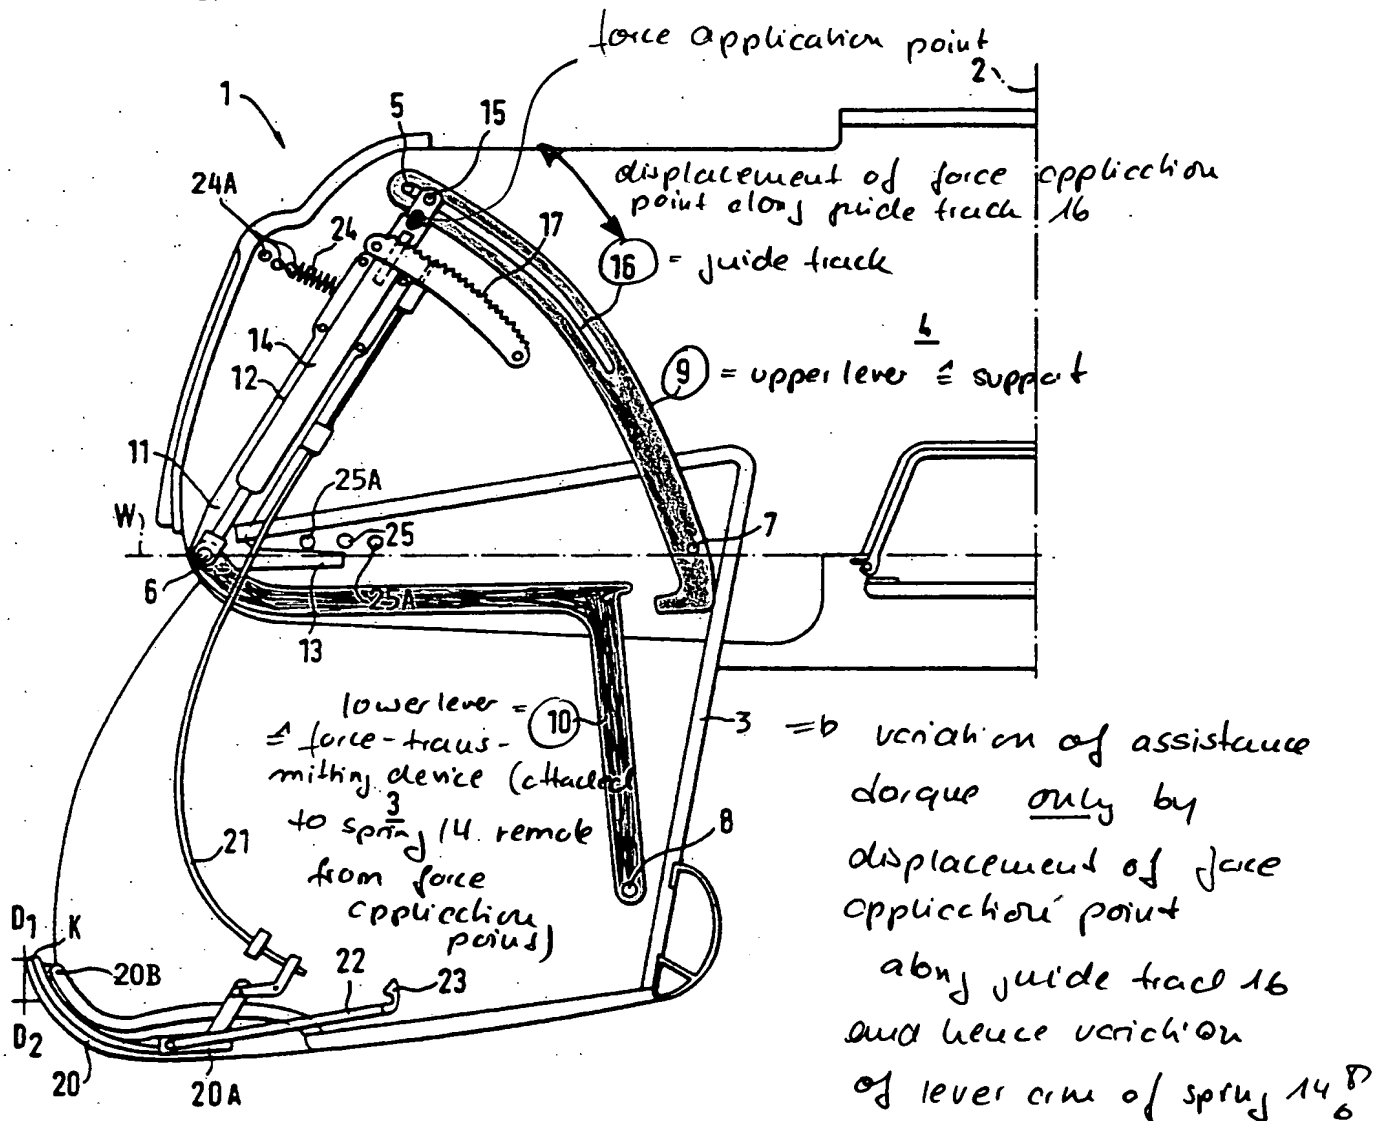 force application point
2
1
5
15
displacement of force application
point along guide track 16
24A
24
17
16 = guide track
4
14
9 = upper lever ≙ support
12
11
25A
W
25
7
6
25A
13
lower lever = 10
≙ force-trans-
mitting device (attached
3
to spring 14 remote
from force
application
point)
3
=> variation of assistance
torque only by
displacement of force
application point
along guide track 16
and hence variation
of lever arm of spring 14
8
21
D1
K
20B
22
23
D2
20
20A